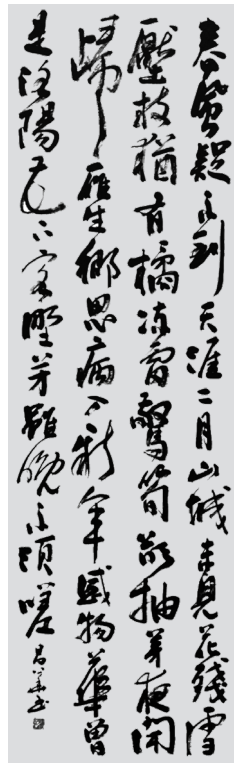 春風疑不到天涯二月山城未見花殘雪
壓枝猶有橘凍雷驚筍欲抽芽夜聞
歸雁生鄉思病入新年感物華曾
是洛陽花下客野芳雖晚不須嗟